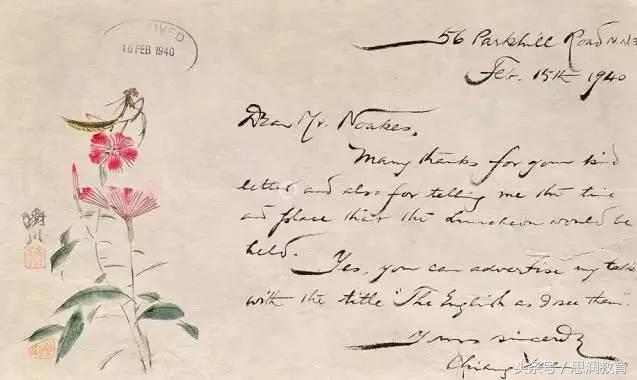 56 Parkhill Road N.W.3
Feb. 15th 1940
16 FEB 1940
Dear Mr. Noakes,
Many thanks for your kind
letter and also for telling me the time
and place that the Luncheon would be
held.
Yes, you can advertise my talk
with the title "The English as I see them".
Yours sincerely
Chiang
头条号/思润教育